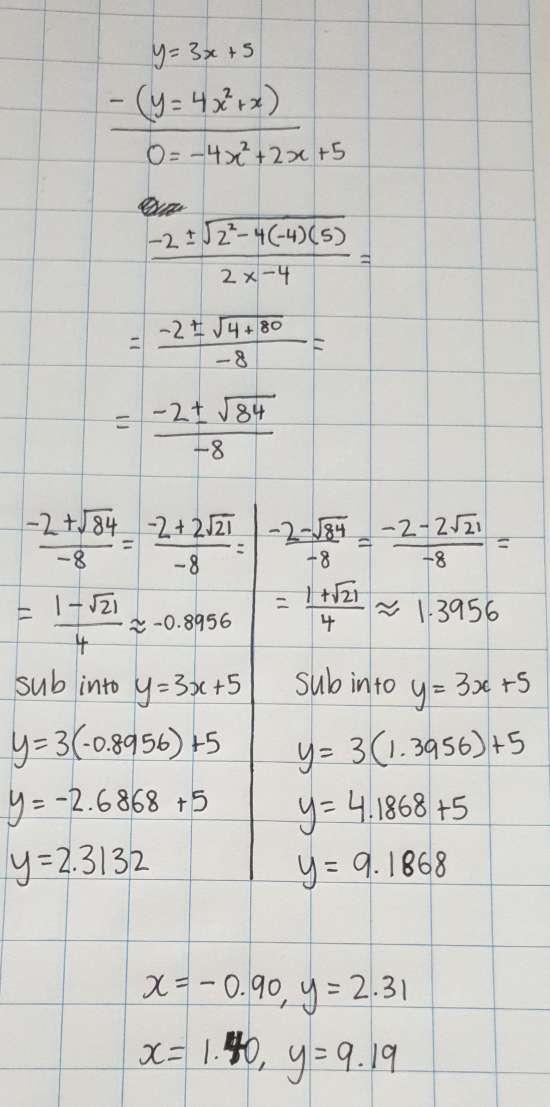 y = 3x + 5
- (y = 4x² + x)
0 = -4x² + 2x + 5
(-2 ± √(2² - 4(-4)(5)))/(2 × -4) =
= (-2 ± √(4 + 80))/(-8) =
= (-2 ± √84)/(-8)
(-2 + √84)/(-8) = (-2 + 2√21)/(-8) =
= (1 - √21)/4 ≈ -0.8956
sub into y = 3x + 5
y = 3(-0.8956) + 5
y = -2.6868 + 5
y = 2.3132
(-2 - √84)/(-8) = (-2 - 2√21)/(-8) =
= (1 + √21)/4 ≈ 1.3956
sub into y = 3x + 5
y = 3(1.3956) + 5
y = 4.1868 + 5
y = 9.1868
x = -0.90, y = 2.31
x = 1.40, y = 9.19